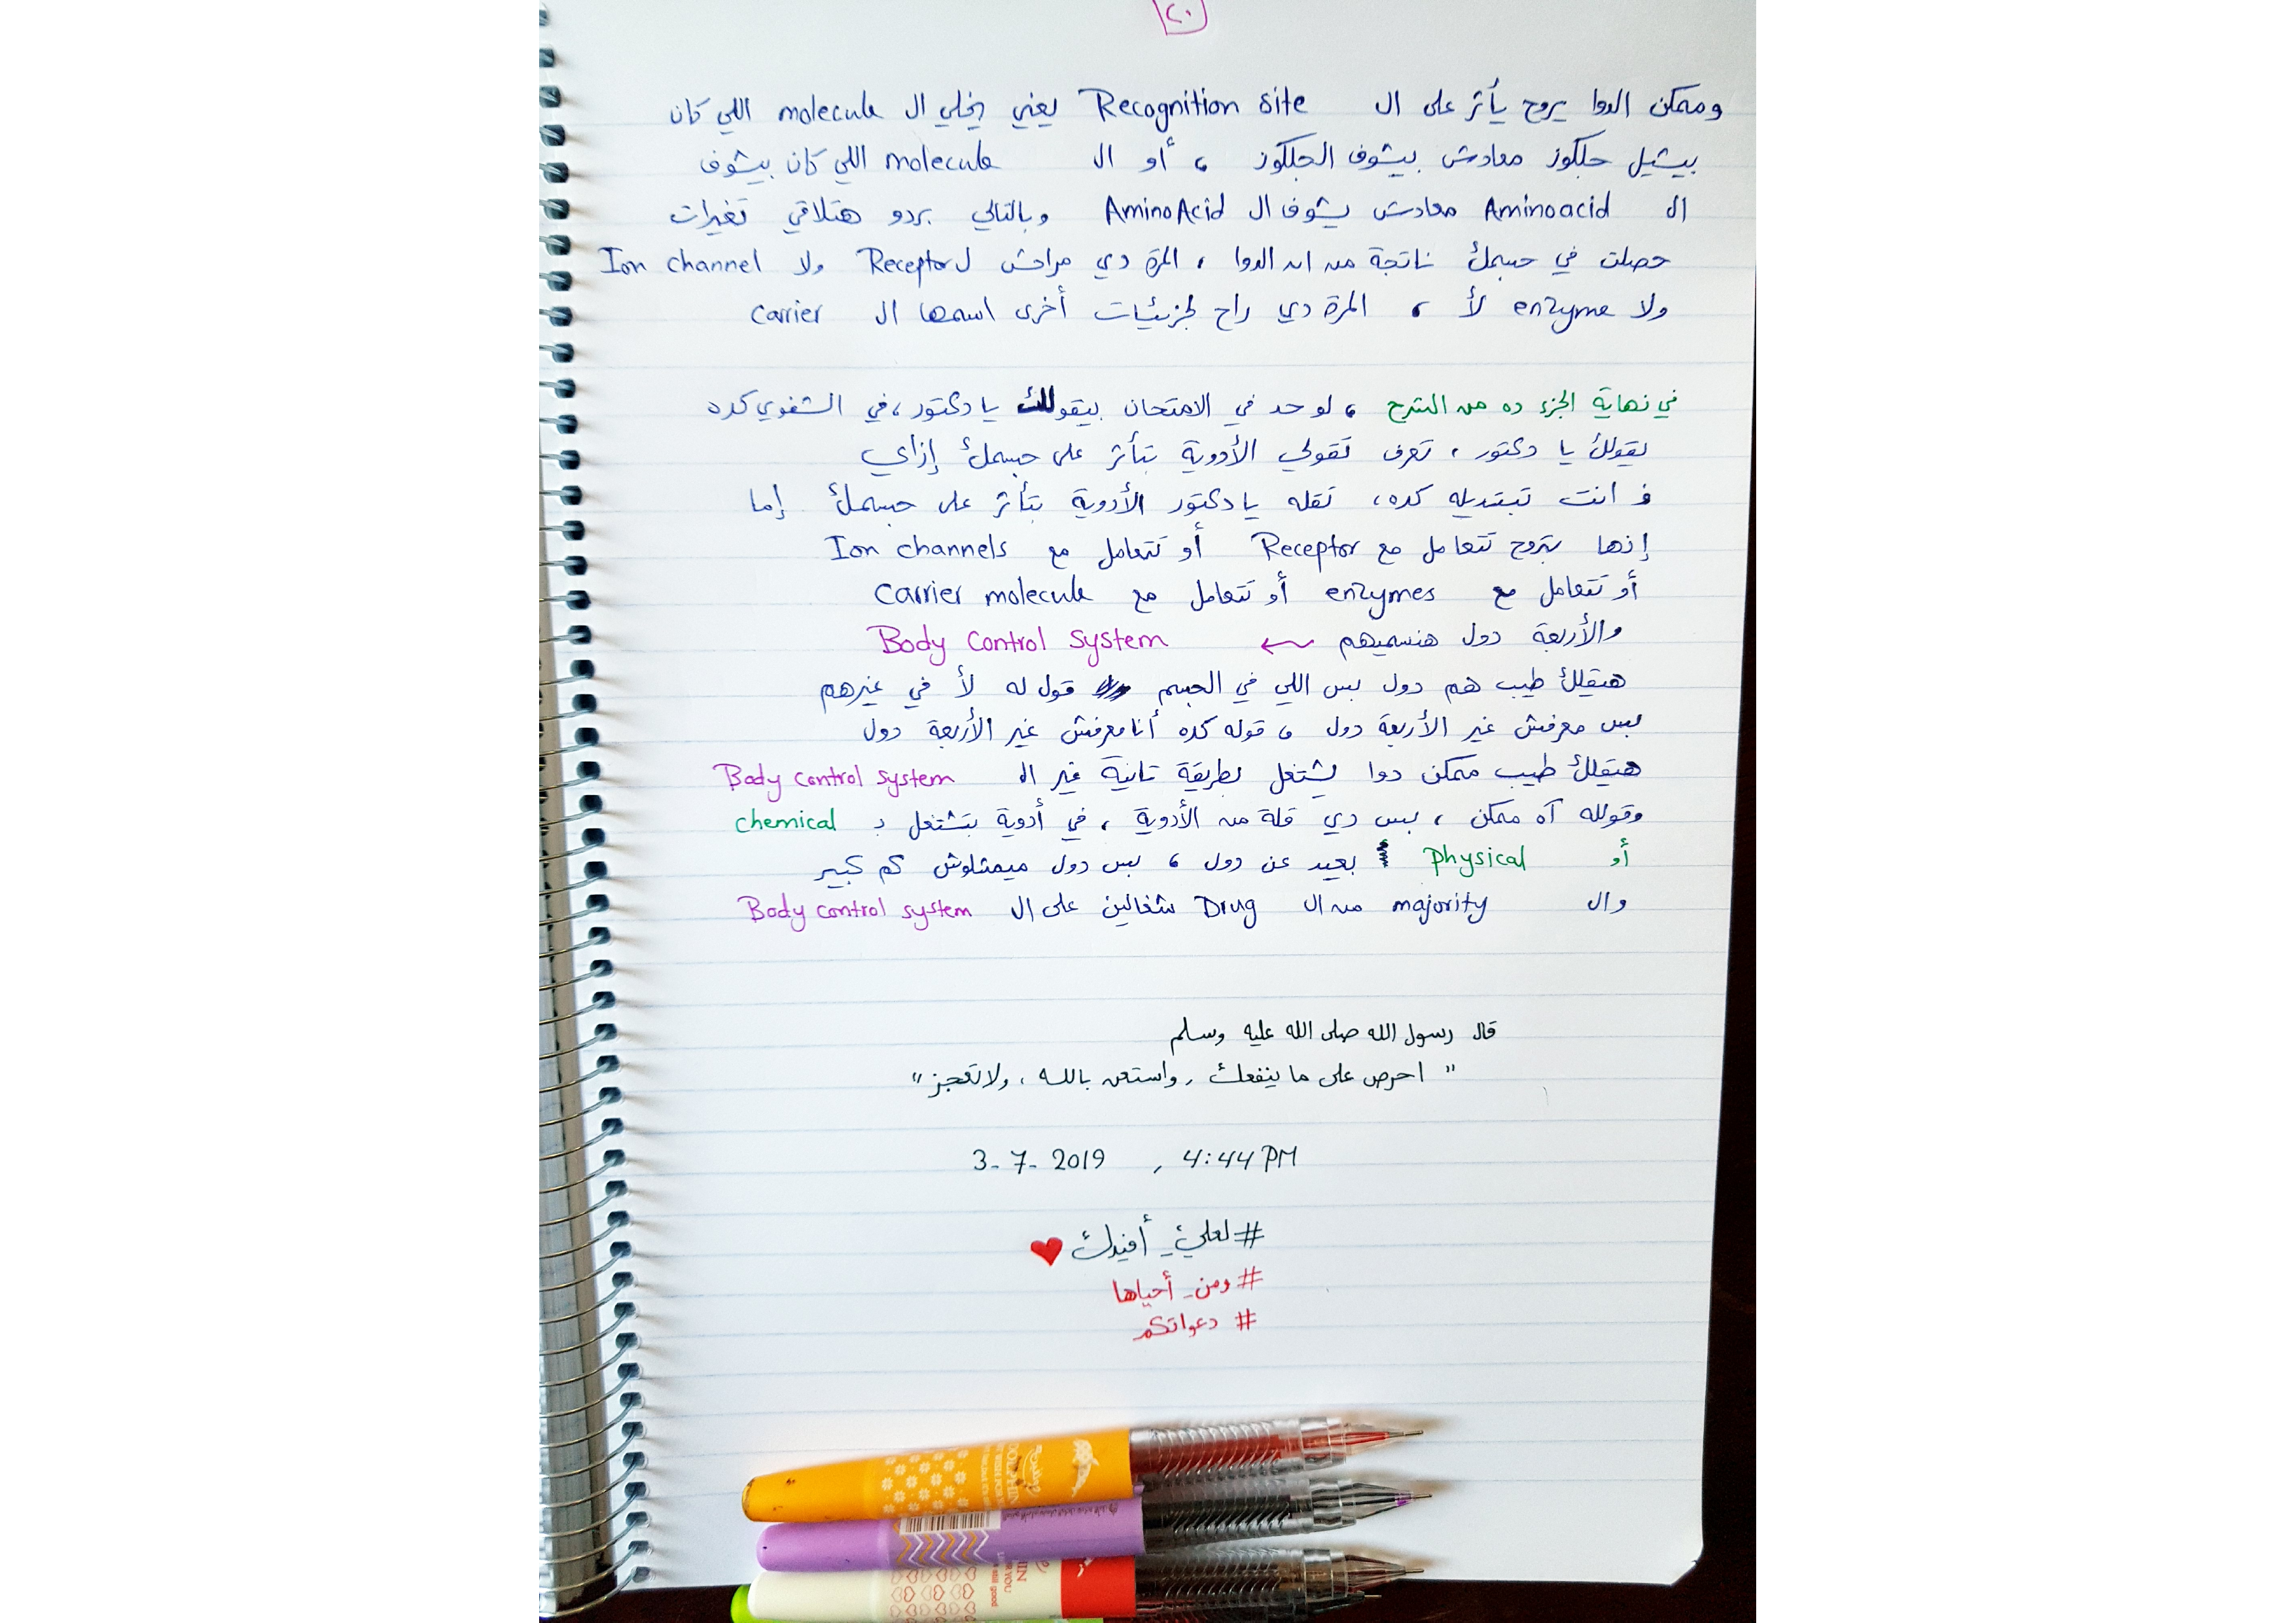 ٢٠
وممكن الدوا يروح يأثر على ال Recognition site يعني يخلي ال molecule اللي كان
بيشيل جلكوز معادش بيشوف الجلكوز ، أو ال molecule اللي كان بيشوف
ال Aminoacid معادش يشوف ال AminoAcid وبالتالي بردو هتلاقي تغيرات
حصلت في جسمك ناتجة من ان الدوا ، المرة دي مراحش ل Receptor ولا Ion channel
ولا enzyme لأ ، المرة دي راح لجزيئات أخرى اسمها ال carrier
في نهاية الجزء ده من الشرح ، لو حد في الامتحان بيقولك يا دكتور ، في الشفوي كده
يقولك يا دكتور ، تعرف تقولي الأدوية بتأثر على جسمك إزاي
ف انت تبتديله كده ، تقله يا دكتور الأدوية بتأثر على جسمك إما
إنها بتروح تتعامل مع Receptor أو تتعامل مع Ion channels
أو تتعامل مع enzymes أو تتعامل مع Carrier molecule
والأربعة دول هنسميهم ← Body Control System
هيقلك طيب هم دول بس اللي في الجسم قول له لأ في غيرهم
بس معرفش غير الأربعة دول ، قوله كده أنا معرفش غير الأربعة دول
هيقلك طيب ممكن دوا يشتغل بطريقة تانية غير ال Body control system
وقولله آه ممكن ، بس دي قلة من الأدوية ، في أدوية بتشتغل ب chemical
أو physical بعيد عن دول ، بس دول ميمثلوش كم كبير
وال majority من ال Drug شغالين على ال Body control system
قال رسول الله صلى الله عليه وسلم
" احرص على ما ينفعك ، واستعن بالله ، ولا تعجز "
3-7-2019 , 4:44 PM
#لعلي_أفيدك ❤
#ومن_أحياها
#دعواتكم